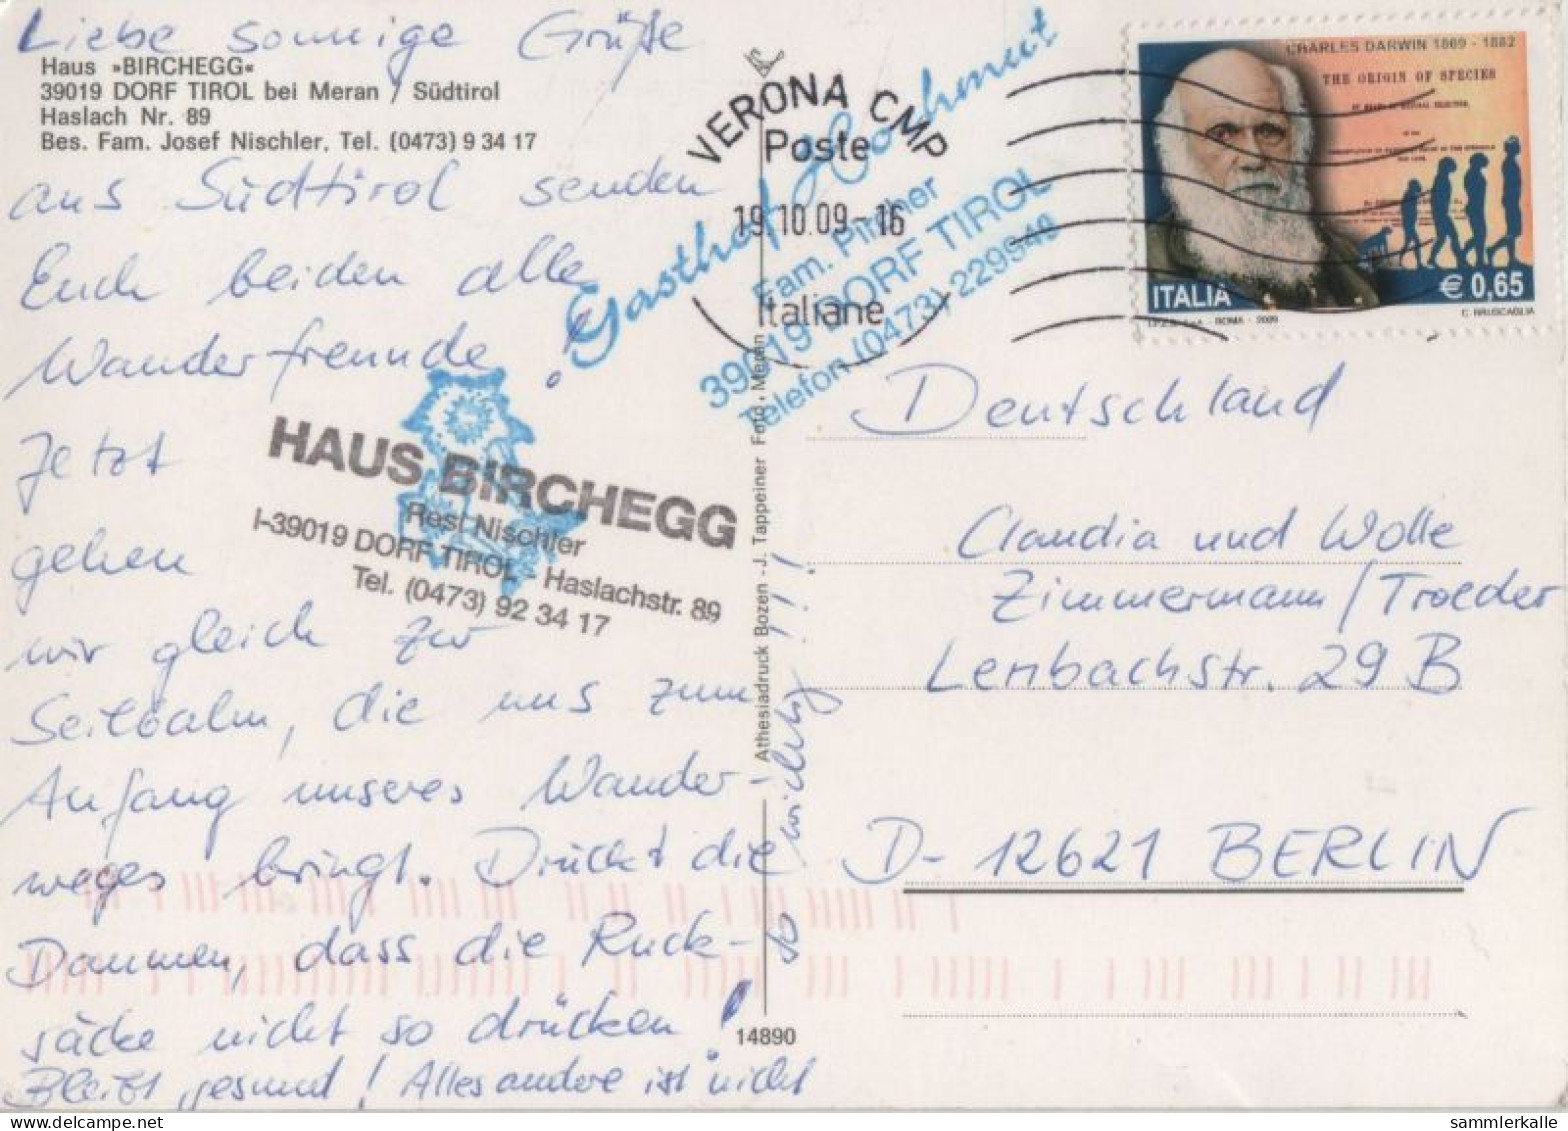 Liebe sonnige Grüße
Haus »BIRCHEGG«
39019 DORF TIROL bei Meran / Südtirol
Haslach Nr. 89
Bes. Fam. Josef Nischler, Tel. (0473) 9 34 17
aus Südtirol senden
Euch beiden alle
Wanderfreunde!
Jetzt
gehen
wir gleich zur
Seilbahn, die uns zum
Anfang unseres Wander-
weges bringt. Drückt die
Daumen, dass die Ruck-
säcke nicht so drücken!
Bleibt gesund! Alles andere ist nicht
so wichtig!!!
HAUS BIRCHEGG
Resi Nischler
I-39019 DORF TIROL - Haslachstr. 89
Tel. (0473) 92 34 17
Gasthof Hochmut
Fam. Pircher
39019 DORF TIROL
Telefon (0473) 229949
VERONA CMP
Poste
19.10.09-16
Italiane
Athesiadruck Bozen - J. Tappeiner Foto, Meran
14890
CHARLES DARWIN 1809 - 1882
THE ORIGIN OF SPECIES
ITALIA
€ 0,65
ROMA - 2009
C. BRUSCAGLIA
Deutschland
Claudia und Wolle
Zimmermann/Troeder
Lenbachstr. 29 B
D-12621 BERLIN
sammlerkalle